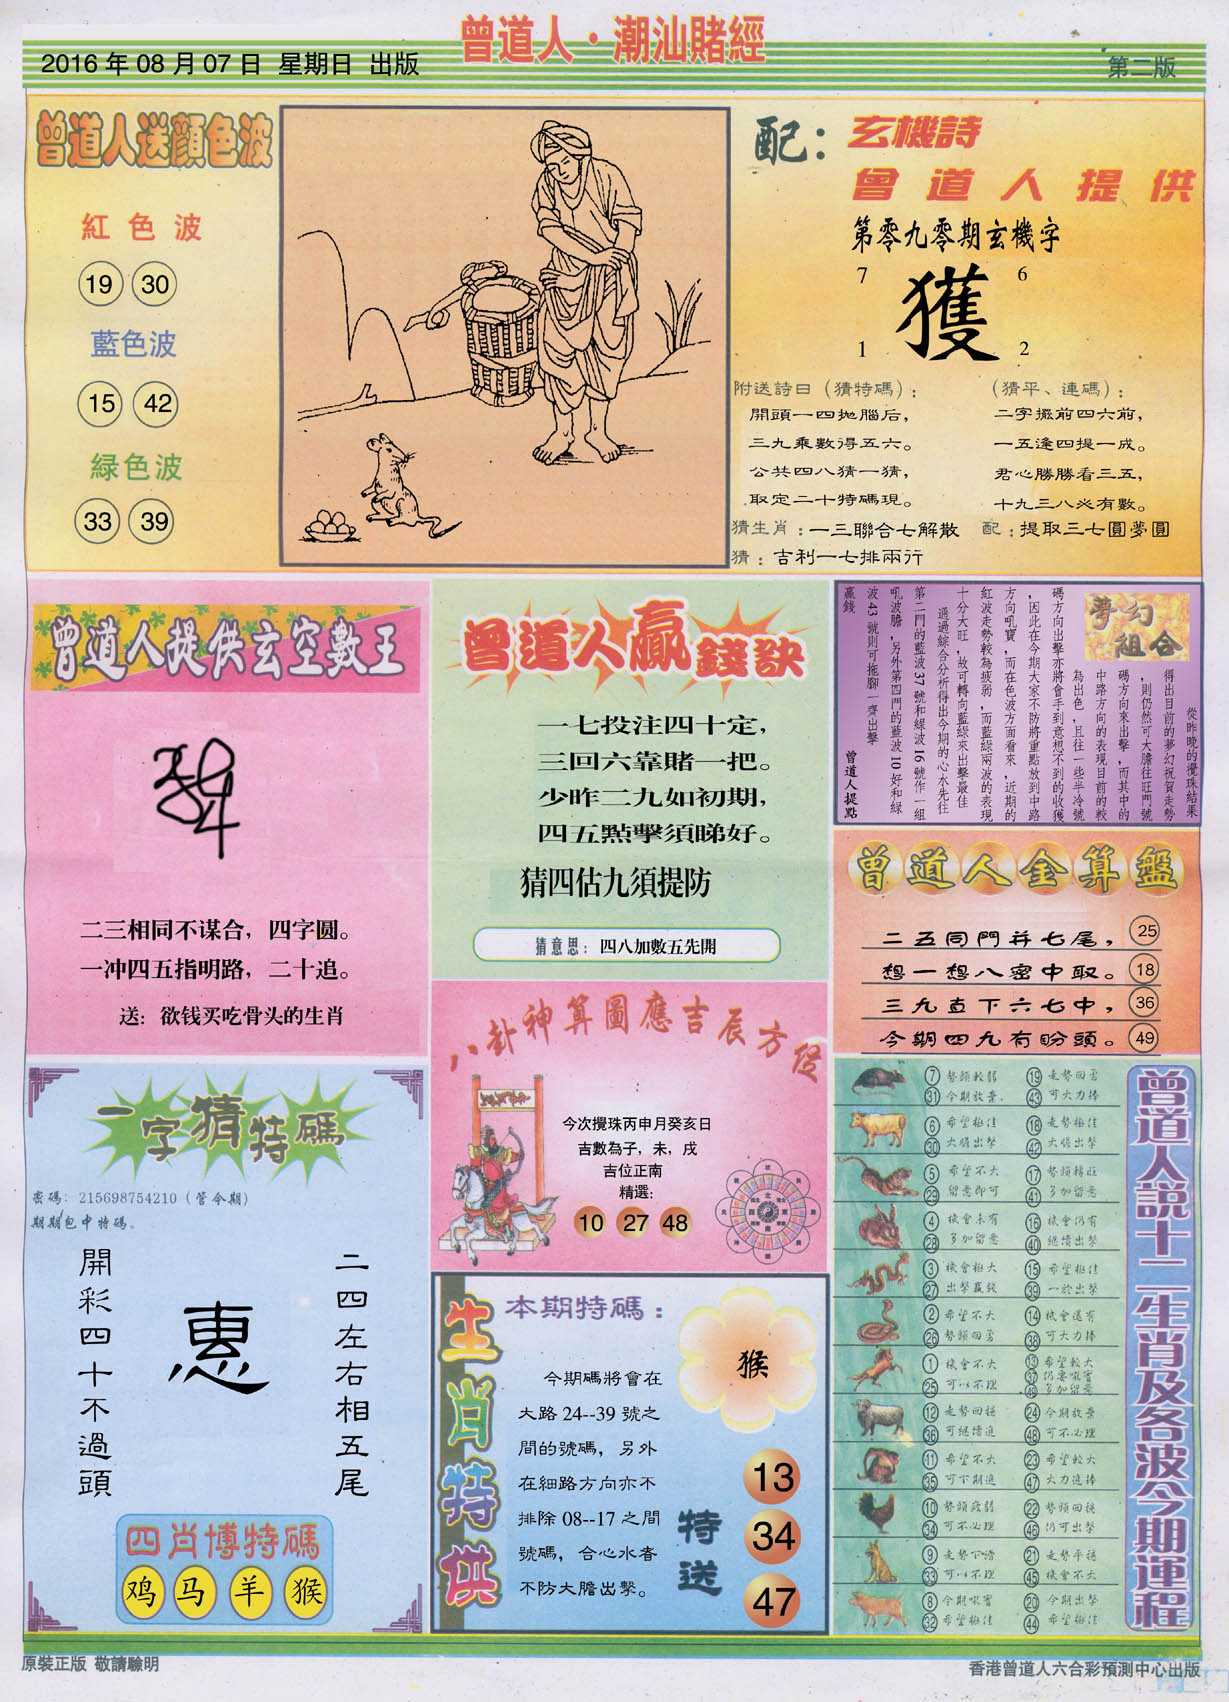 曾道人·潮汕賭經
2016年08月07日 星期日 出版
第二版
曾道人送顔色波
紅色波
19 30
藍色波
15 42
緑色波
33 39
配：玄機詩
曾道人提供
第零九零期玄機字
7 6
獲
1 2
附送詩曰（猜特碼）：
開頭一四拋腦后，
三九乘數得五六。
公共四八猜一猜，
取定二十特碼現。
（猜平、連碼）：
二字擺前四六前，
一五逢四提一成。
君心勝勝看三五，
十九三八必有數。
猜生肖：一三聯合七解散 配：提取三七圓夢圓
猜：吉利一七排兩行
曾道人提供玄空數王
二三相同不谋合，四字圆。
一冲四五指明路，二十追。
送：欲钱买吃骨头的生肖
曾道人贏錢訣
一七投注四十定，
三回六靠賭一把。
少昨二九如初期，
四五點擊須睇好。
猜四估九須提防
猜意思：四八加數五先開
夢幻
組合
從昨晚的攪珠結果
得出目前的夢幻祝賀走勢
，則仍然可大膽往旺門號
碼方向來出擊，而其中的
中路方向的表現目前的較
為出色，且往一些半冷號
碼方向出擊亦將會手到意想不到的收獲
，因此在今期大家不防將重點放到中路
方向吼寶，而在色波方面看來，近期的
紅波走勢較為疲弱，而藍綠兩波的表現
十分大旺，故可轉向藍綠來出擊最佳
通過綜合分析得出今期的心水先往
第二門的藍波37號和綠波16號作一組
吼波膽，另外第四門的藍波10好和綠
波43號則可拖腳一齊出擊
贏錢
曾道人提點
曾道人金算盤
二五同門并七尾， 25
想一想八密中取。 18
三九直下六七中， 36
今期四九有盼頭。 49
八卦神算圖應吉辰方位
今次攪珠丙申月癸亥日
吉數為子，未，戌
吉位正南
精選：
10 27 48
一字猜特碼
密碼：215698754210（管今期）
期期包中特碼。
二四左右相五尾
惠
開彩四十不過頭
四肖博特碼
鸡 马 羊 猴
生肖特供
本期特碼：
猴
今期碼將會在
大路24--39號之
間的號碼，另外
在細路方向亦不
排除08--17之間
號碼，合心水者
不防大膽出擊。
特送
13
34
47
曾道人説十二生肖及各波今期運程
7 勢頭較弱 19 走勢回勇
31 今期放棄 43 可大力捧
6 希望極佳 18 走勢極佳
30 大膽出擊 42 大膽出擊
5 希望不大 17 勢頭轉旺
29 留意即可 41 多加留意
4 機會未有 16 機會仍有
28 多加留意 40 繼續出擊
3 機會極大 15 希望極佳
27 出擊贏錢 39 一於出擊
2 希望不大 14 機會還有
26 勢頭回勇 38 可大力捧
1 機會不大 13 希望較大
25 可以不理 37 仍要吸寶
49 多加留意
12 走勢回穩 24 今期放棄
36 可繼續追 48 可不必理
11 希望不大 23 希望較大
35 可下期追 47 大力追捧
10 勢頭疲弱 22 勢頭回穩
34 可不必理 46 仍可出擊
9 走勢下滑 21 走勢平穩
33 可以不理 45 機會不大
8 今期吸寶 20 今期出擊
32 希望極佳 44 希望極佳
原裝正版 敬請驗明
香港曾道人六合彩預測中心出版